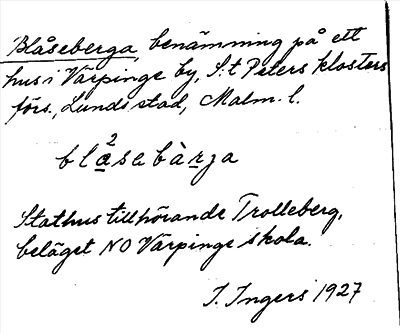 Blåseberga, benämning på ett
hus i Värpinge by, S:t Peters klosters
förs., Lunds stad, Malm. l.
2
blåsebàrja
Stathus tillhörande Trolleberg,
beläget NO Värpinge skola.
I. Ingers 1927